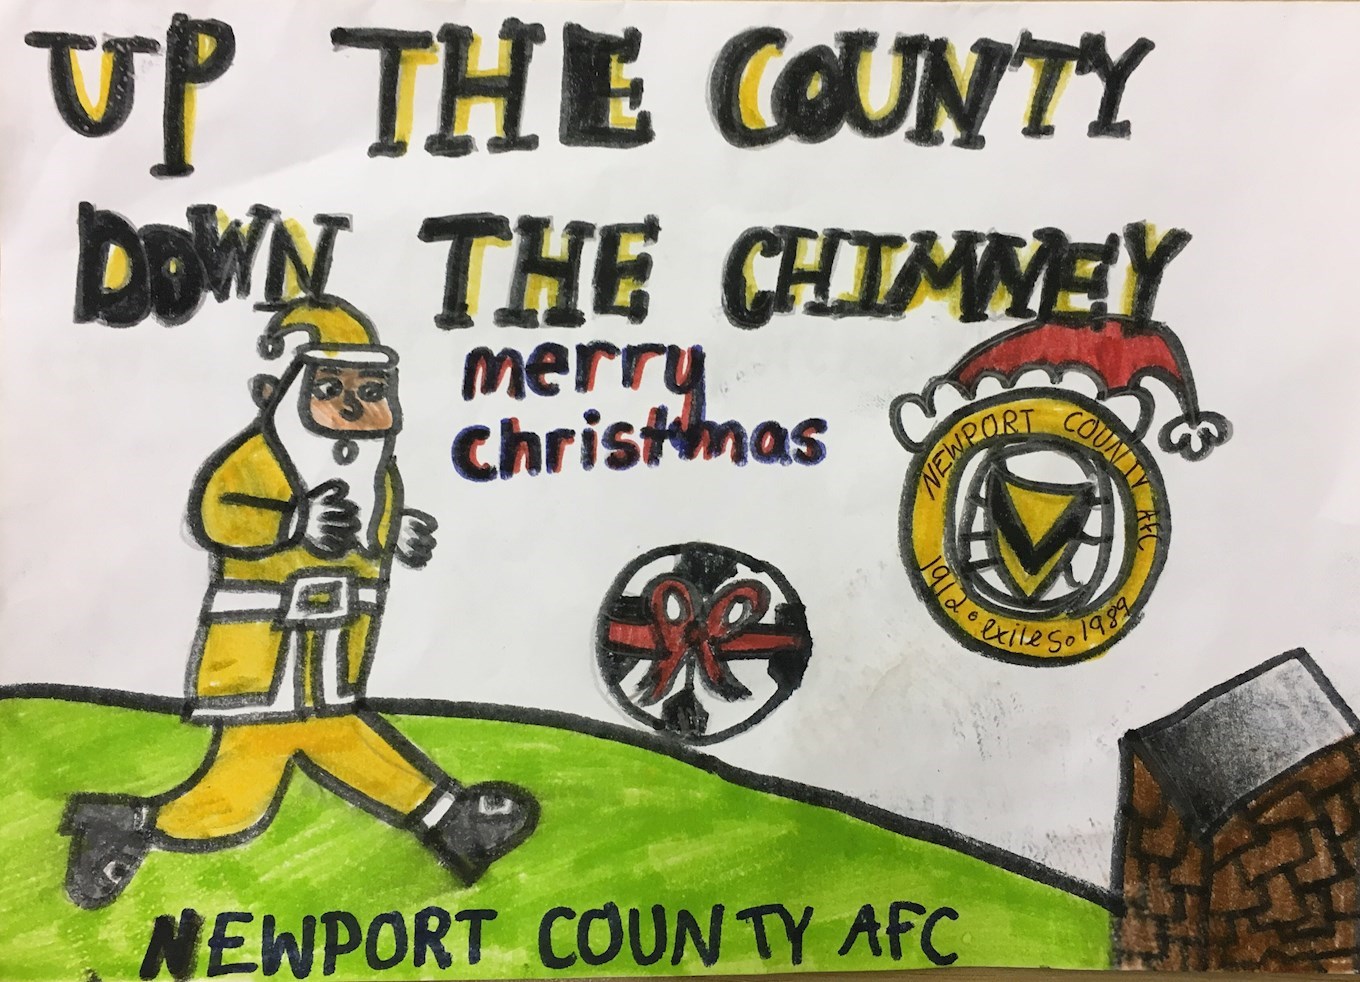 UP THE COUNTY
DOWN THE CHIMNEY
merry
christmas
NEWPORT COUNTY AFC
1912 exiles 1989
NEWPORT COUNTY AFC